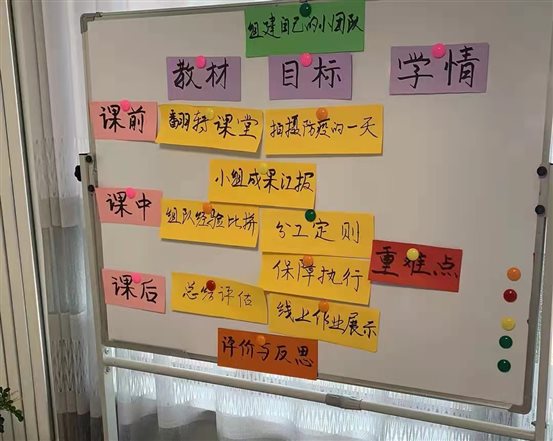 组建自己的小团队
教材
目标
学情
课前
翻转课堂
拍摄防疫的一天
小组成果汇报
课中
组队经验比拼
分工定则
重难点
保障执行
课后
总结评估
线上作业展示
评价与反思